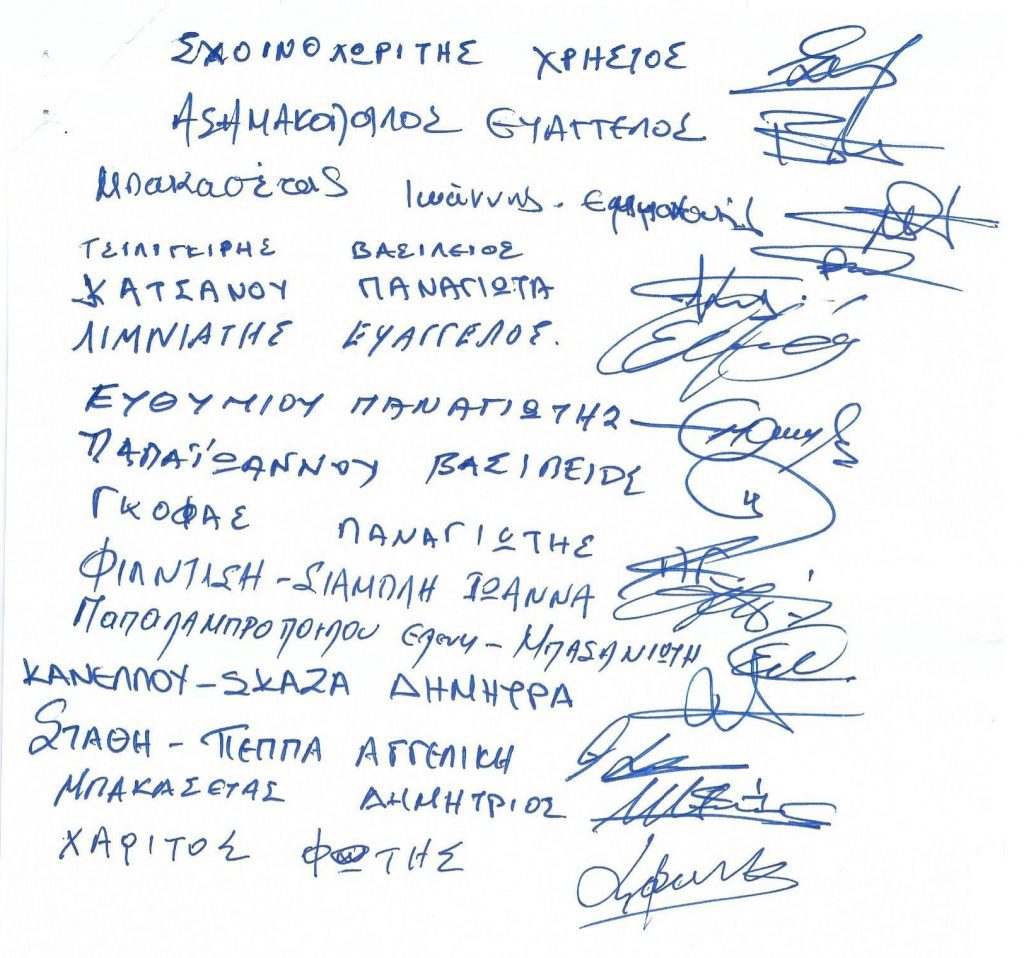 ΣΧΟΙΝΟΧΩΡΙΤΗΣ ΧΡΗΣΤΟΣ
ΑΣΗΜΑΚΟΠΟΥΛΟΣ ΕΥΑΓΓΕΛΟΣ
Μπακασέτας Ιωάννης -
ΤΣΙΛΙΓΕΙΡΗΣ ΒΑΣΙΛΕΙΟΣ
ΚΑΤΣΑΝΟΥ ΠΑΝΑΓΙΩΤΑ
ΛΙΜΝΙΑΤΗΣ ΕΥΑΓΓΕΛΟΣ.
ΕΥΘΥΜΙΟΥ ΠΑΝΑΓΙΩΤΗΣ
ΠΑΠΑΪΩΑΝΝΟΥ ΒΑΣΙΛΕΙΟΣ
ΓΚΟΦΑΣ ΠΑΝΑΓΙΩΤΗΣ
ΦΙΛΝΤΙΣΗ - ΣΙΑΜΠΛΗ ΙΩΑΝΝΑ
ΠΑΠΑΛΑΜΠΡΟΠΟΥΛΟΥ Ελενη - ΜΠΑΣΑΝΙΩΤΗ
ΚΑΝΕΛΛΟΥ - ΣΚΑΖΑ ΔΗΜΗΤΡΑ
ΣΤΑΘΗ - ΠΕΠΠΑ ΑΓΓΕΛΙΚΗ
ΜΠΑΚΑΣΕΤΑΣ ΔΗΜΗΤΡΙΟΣ
ΧΑΡΙΤΟΣ ΦΩΤΗΣ